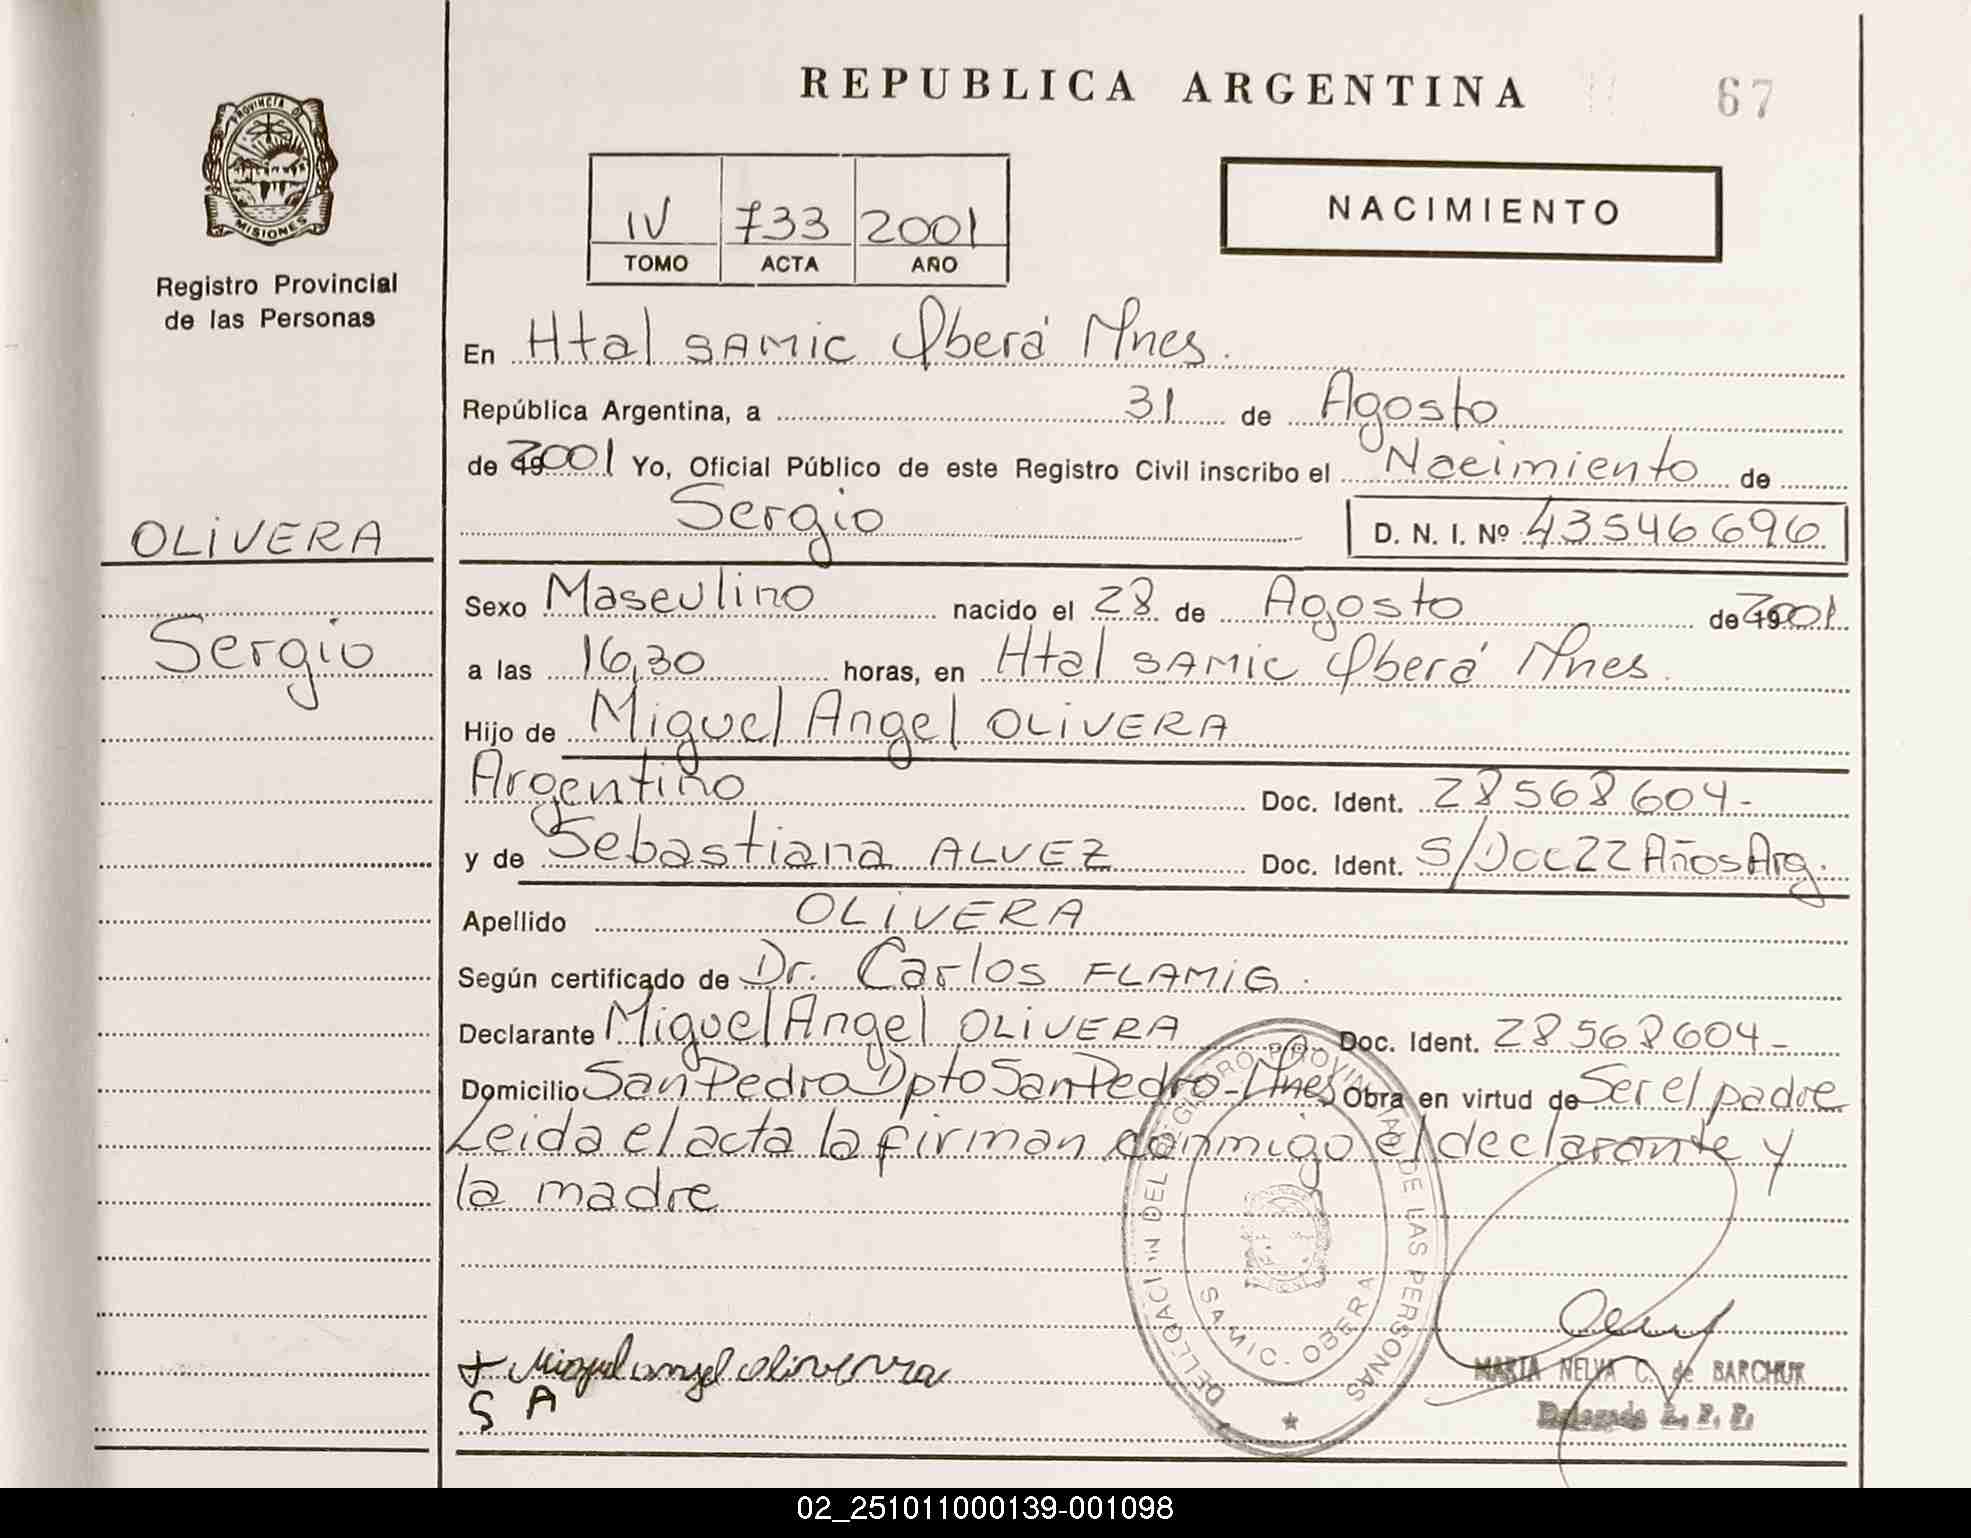 REPUBLICA ARGENTINA
67
PROVINCIA D
MISIONES
Registro Provincial
de las Personas
IV 733 2001
TOMO ACTA AÑO
NACIMIENTO
En Htal SAMIC Oberá Mnes.
República Argentina, a 31 de Agosto
de 2001 Yo, Oficial Público de este Registro Civil inscribo el Nacimiento de
Sergio D. N. I. Nº 43546696
OLIVERA
Sergio
Sexo Masculino nacido el 28 de Agosto de 2001
a las 16,30 horas, en Htal SAMIC Oberá Mnes.
Hijo de Miguel Angel OLIVERA
Argentino Doc. Ident. 28568604-
y de Sebastiana ALVEZ Doc. Ident. S/Doc 22 Años Arg.
Apellido OLIVERA
Según certificado de Dr. Carlos FLAMIG.
Declarante Miguel Angel OLIVERA Doc. Ident. 28568604-
Domicilio San Pedro Dpto San Pedro-Mnes Obra en virtud de Ser el padre
Leida el acta la firman conmigo el declarante y
la madre
DELEGACIÓN DEL REGISTRO PROVINCIAL DE LAS PERSONAS
SAMIC. OBERA
+ Miguel angel olivera
S A
MARIA NELVA C. de BARCHUK
Delegada R. P. P.
02_251011000139-001098